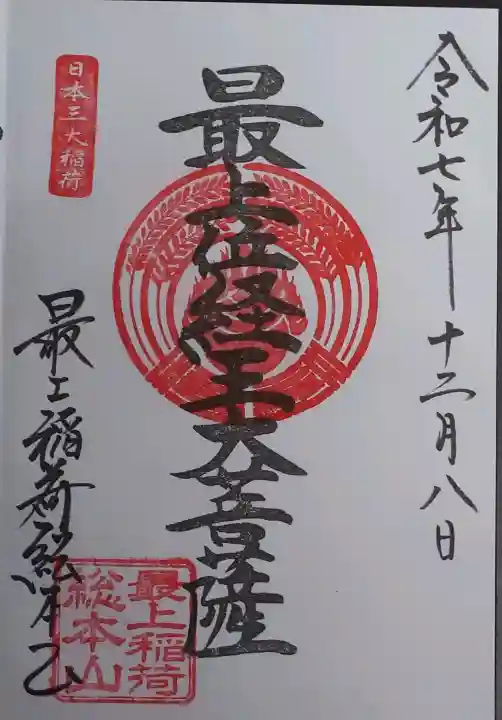 令和七年十二月八日
最上位経王大菩薩
日本三大稲荷
最上稲荷総本山
最上稲荷
総本山